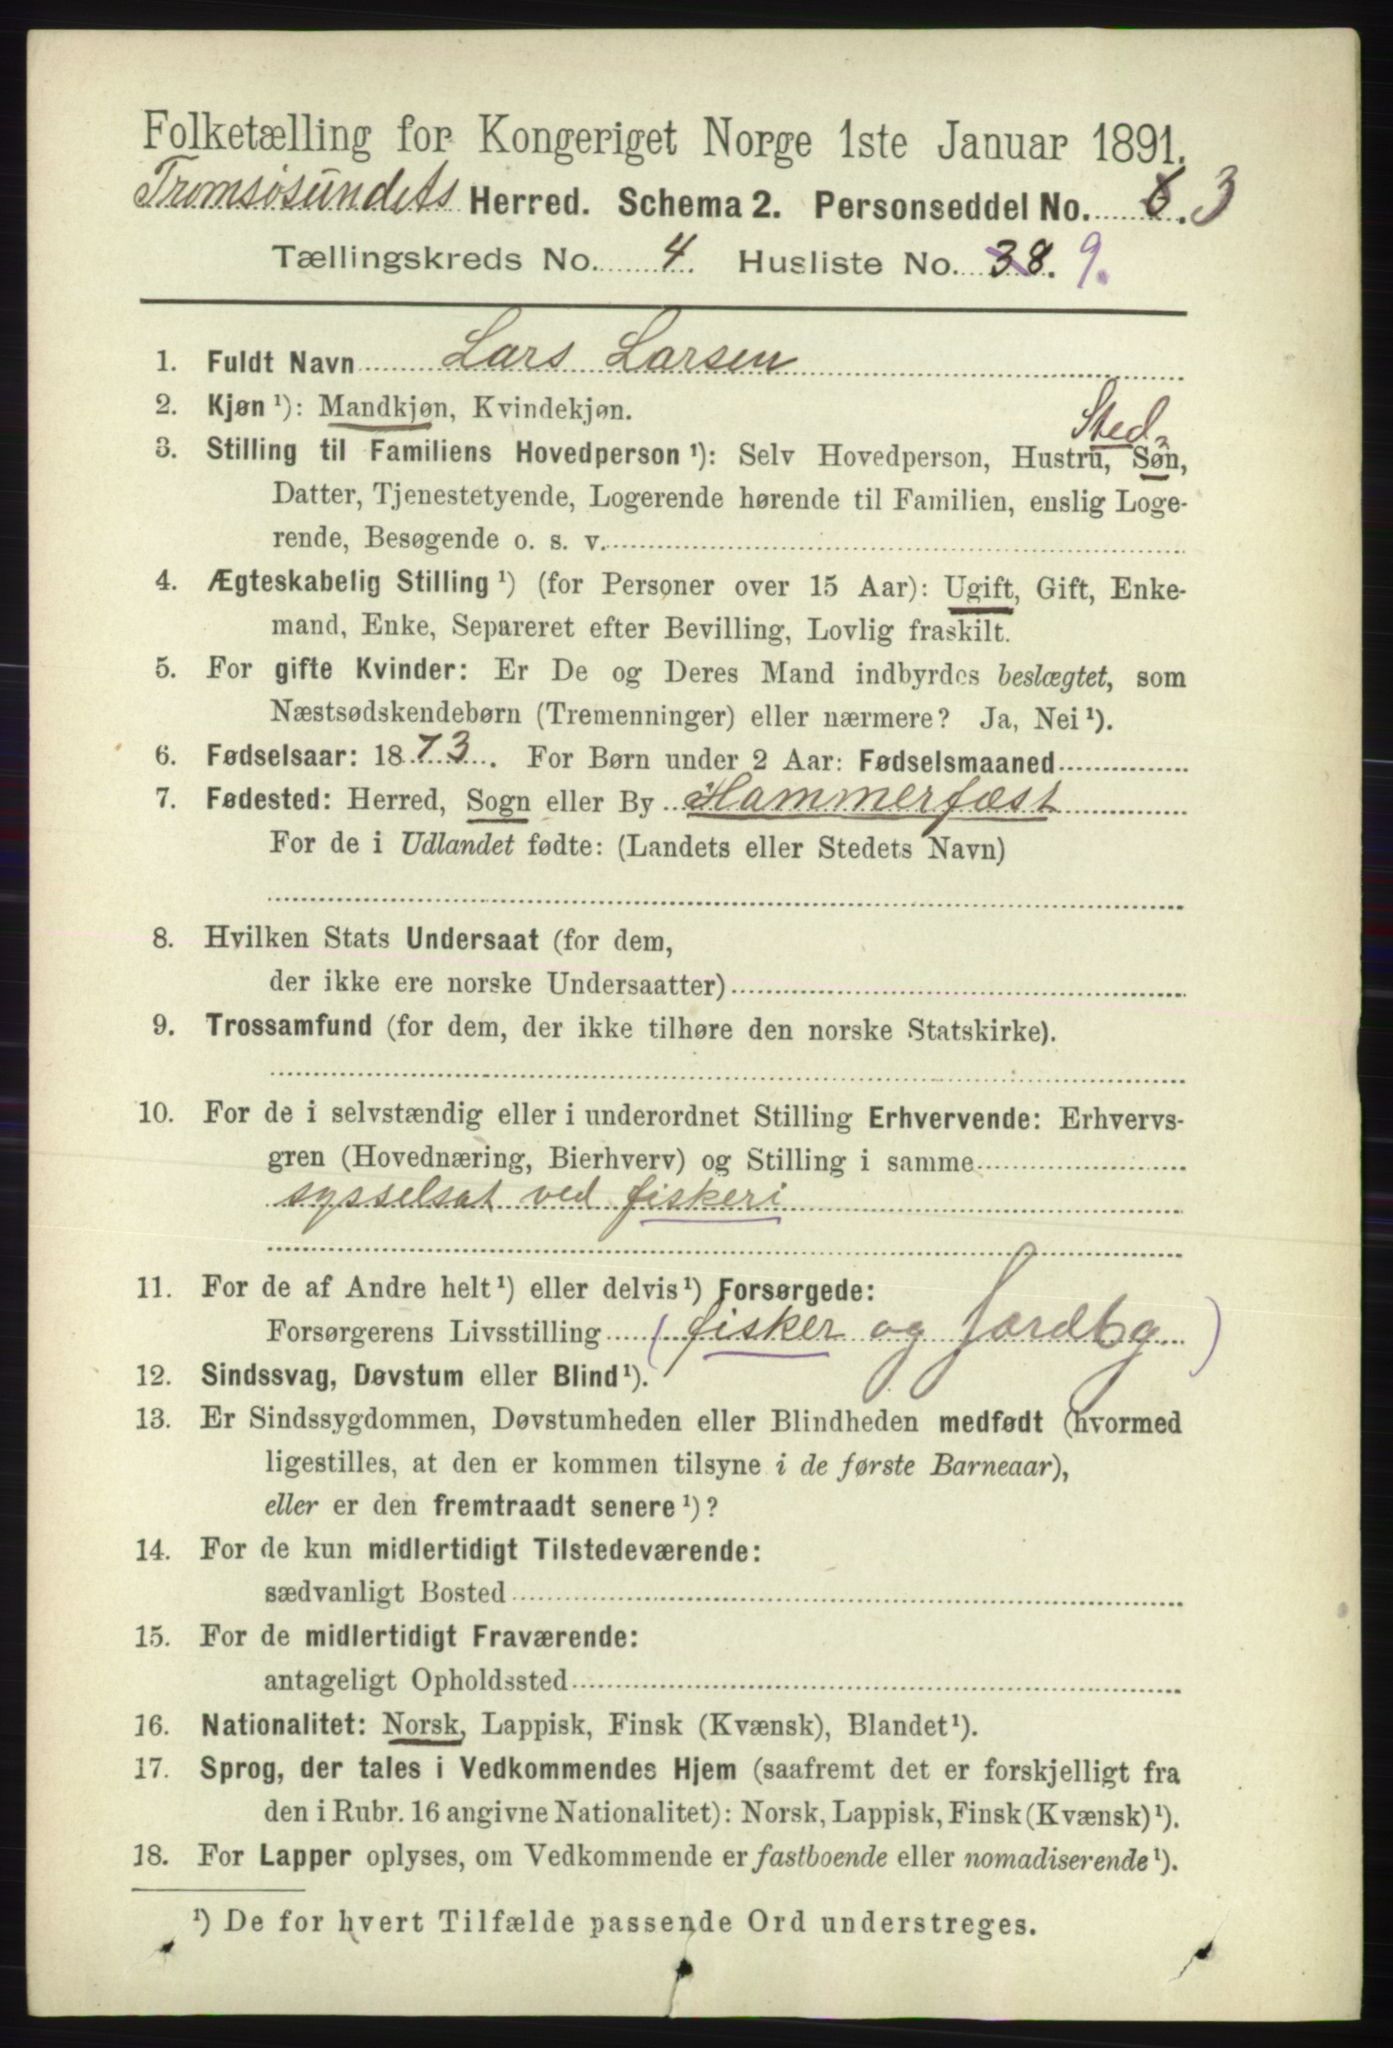 Folketælling for Kongeriget Norge 1ste Januar 1891.
Tromsøsundets Herred. Schema 2. Personseddel No. 6. 3
Tællingskreds No. 4. Husliste No. 38. 9.
1. Fuldt Navn Lars Larsen
2. Kjøn ¹): Mandkjøn, Kvindekjøn.
Sted-
3. Stilling til Familiens Hovedperson ¹): Selv Hovedperson, Hustru, Søn,
Datter, Tjenestetyende, Logerende hørende til Familien, enslig Loge-
rende, Besøgende o. s. v.
4. Ægteskabelig Stilling ¹) (for Personer over 15 Aar): Ugift, Gift, Enke-
mand, Enke, Separeret efter Bevilling, Lovlig fraskilt.
5. For gifte Kvinder: Er De og Deres Mand indbyrdes beslægtet, som
Næstsødskendebørn (Tremenninger) eller nærmere? Ja, Nei ¹).
6. Fødselsaar: 1873. For Børn under 2 Aar: Fødselsmaaned
7. Fødested: Herred, Sogn eller By Hammerfæst
For de i Udlandet fødte: (Landets eller Stedets Navn)
8. Hvilken Stats Undersaat (for dem,
der ikke ere norske Undersaatter)
9. Trossamfund (for dem, der ikke tilhøre den norske Statskirke).
10. For de i selvstændig eller i underordnet Stilling Erhvervende: Erhvervs-
gren (Hovednæring, Bierhverv) og Stilling i samme
sysselsat ved fiskeri
11. For de af Andre helt ¹) eller delvis ¹) Forsørgede:
Forsørgerens Livsstilling (fisker og Jordbg)
12. Sindssvag, Døvstum eller Blind ¹).
13. Er Sindssygdommen, Døvstumheden eller Blindheden medfødt (hvormed
ligestilles, at den er kommen tilsyne i de første Barneaar),
eller er den fremtraadt senere ¹)?
14. For de kun midlertidigt Tilstedeværende:
sædvanligt Bosted
15. For de midlertidigt Fraværende:
antageligt Opholdssted
16. Nationalitet: Norsk, Lappisk, Finsk (Kvænsk), Blandet ¹).
17. Sprog, der tales i Vedkommendes Hjem (saafremt det er forskjelligt fra
den i Rubr. 16 angivne Nationalitet): Norsk, Lappisk, Finsk (Kvænsk) ¹).
18. For Lapper oplyses, om Vedkommende er fastboende eller nomadiserende ¹).
¹) De for hvert Tilfælde passende Ord understreges.